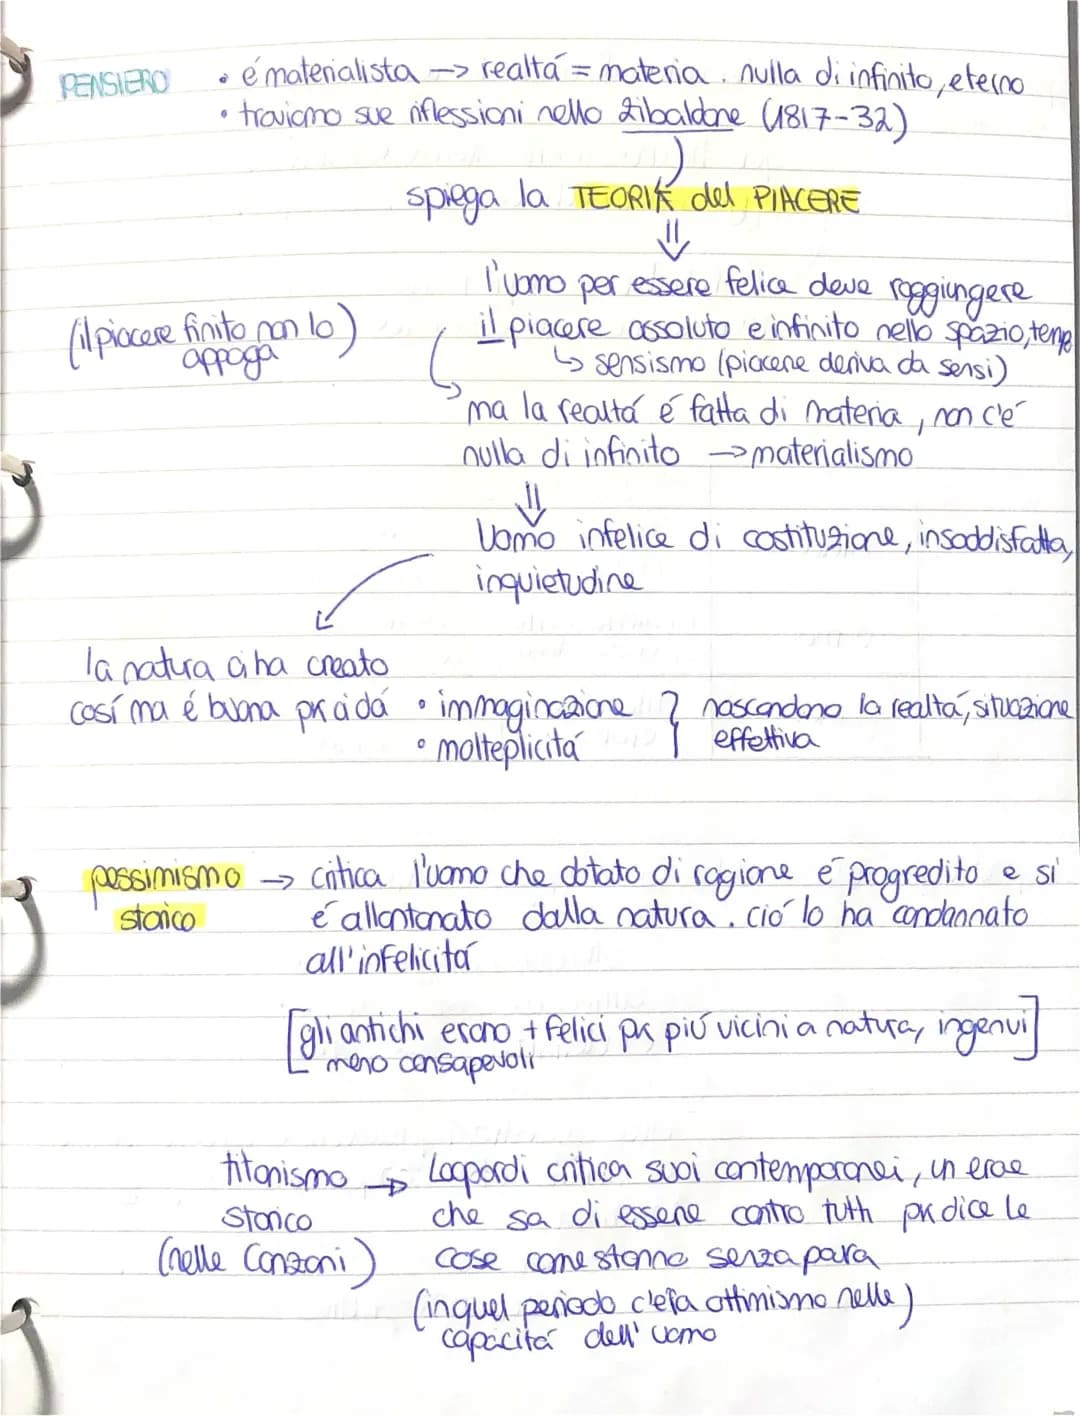 PENSIERO
• é materialista → realtá = materia. nulla di infinito, eterno
• troviamo sue riflessioni nello Zibaldone (1817-32)
spiega la TEORIA del PIACERE
⇓
l'uomo per essere felice deve raggiungere
il piacere assoluto e infinito nello spazio, temp
(il piacere finito non lo appaga)
↳ sensismo (piacere deriva da sensi)
ma la realtá é fatta di materia, non c'é
nulla di infinito → materialismo
⇓
Uomo infelice di costituzione, insoddisfatta,
inquietudine
la natura ci ha creato
cosí ma é buona pk ci dá • immaginazione } nascondono la realtá, situazione
• molteplicitá effettiva
pessimismo → critica l'uomo che dotato di ragione é progredito e si
storico é allontanato dalla natura. ció lo ha condannato
all'infelicitá
[gli antichi erano + felici pk piú vicini a natura, ingenui]
meno consapevoli
titanismo → Leopardi critica suoi contemporanei, un eroe
storico che sa di essere contro tutti pk dice le
(nelle Canzoni) cose come stanno senza paura
(in quel periodo c'era ottimismo nelle)
capacitá dell'uomo